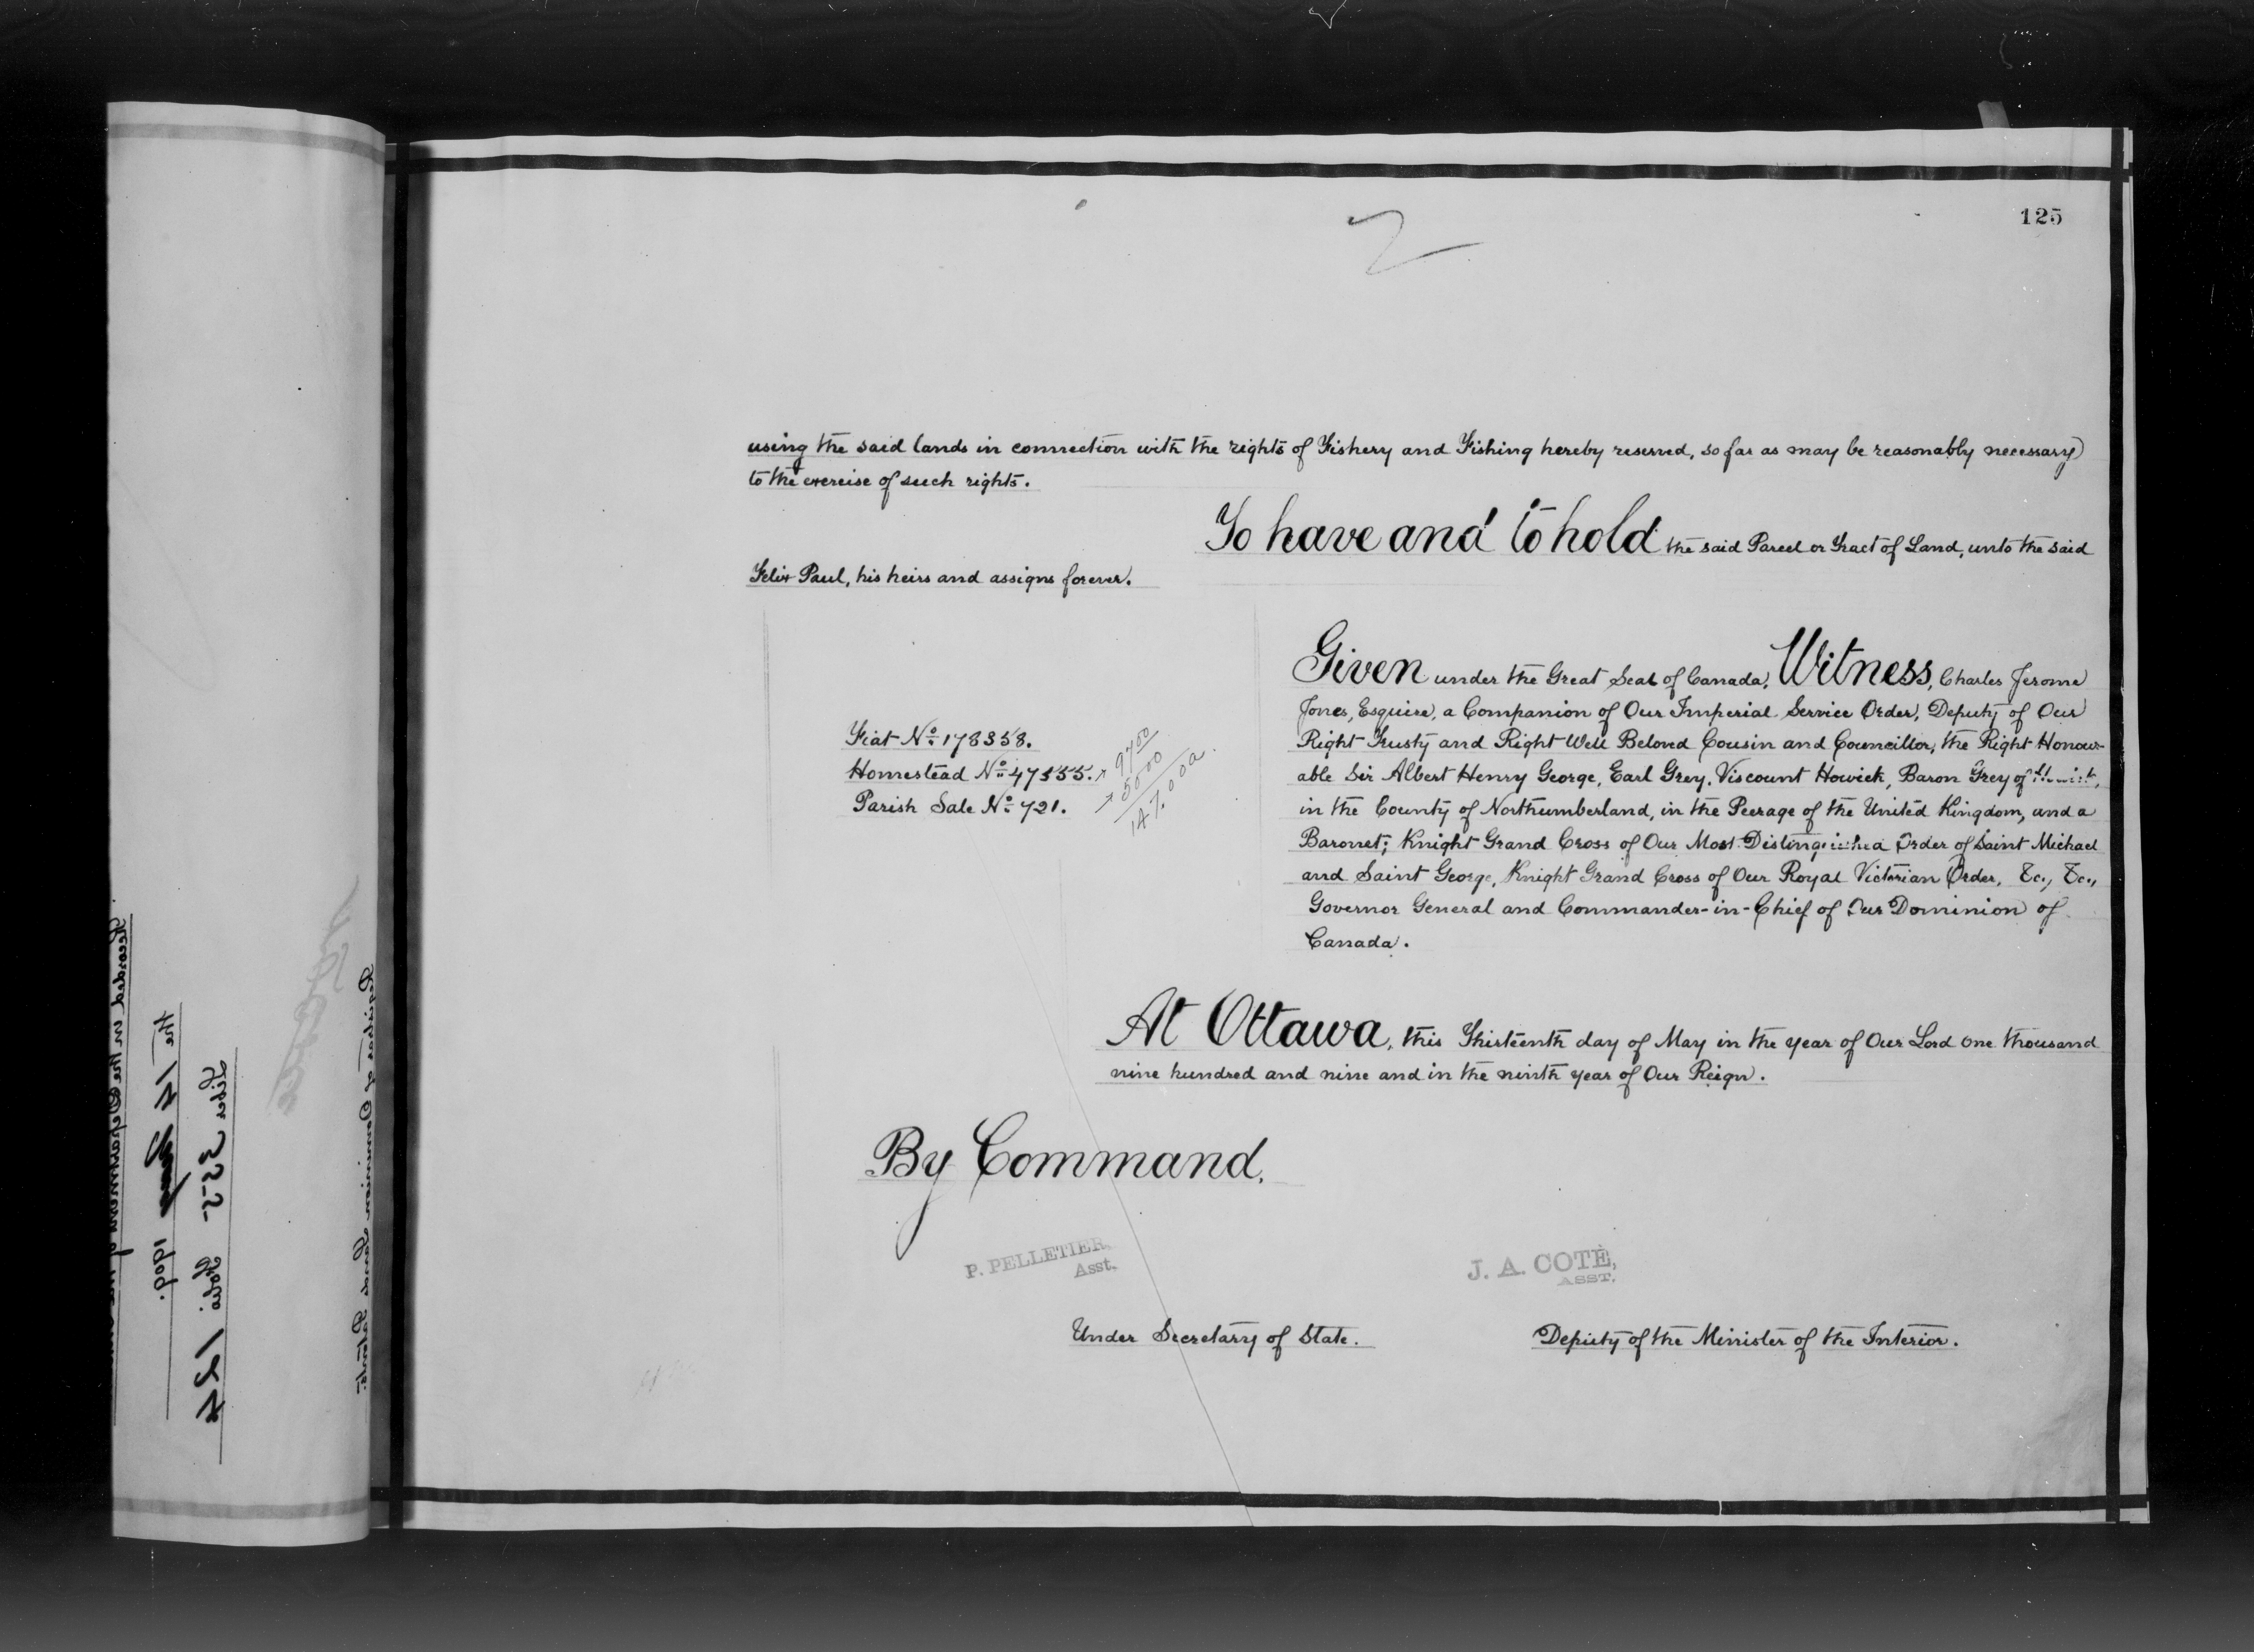 125
using the said lands in connection with the rights of Fishery and Fishing hereby reserved, so far as may be reasonably necessary
to the exercise of such rights.
To have and to hold the said Parcel or Tract of Land, unto the said
Felix Paul, his heirs and assigns forever.
Given under the Great Seal of Canada, Witness, Charles Jerome
Jones, Esquire, a Companion of Our Imperial Service Order, Deputy of Our
Right Trusty and Right Well Beloved Cousin and Councillor, the Right Honour-
able Sir Albert Henry George, Earl Grey, Viscount Howick, Baron Grey of Howick,
in the County of Northumberland, in the Peerage of the United Kingdom, and a
Baronet; Knight Grand Cross of Our Most Distinguished Order of Saint Michael
and Saint George, Knight Grand Cross of Our Royal Victorian Order, &c., &c.,
Governor General and Commander-in-Chief of Our Dominion of
Canada.
Fiat No. 178358.
Homestead No. 47355.
Parish Sale No. 721.
97.00
50.00
147.00 a.
At Ottawa, this Thirteenth day of May in the year of Our Lord one thousand
nine hundred and nine and in the ninth year of Our Reign.
By Command,
P. PELLETIER,
Asst.
Under Secretary of State.
J. A. COTÉ,
ASST.
Deputy of the Minister of the Interior.
Recorded in the Department of the
the 14 1909.
Liber 355 Folio 124
Register of Dominion Lands Patents.